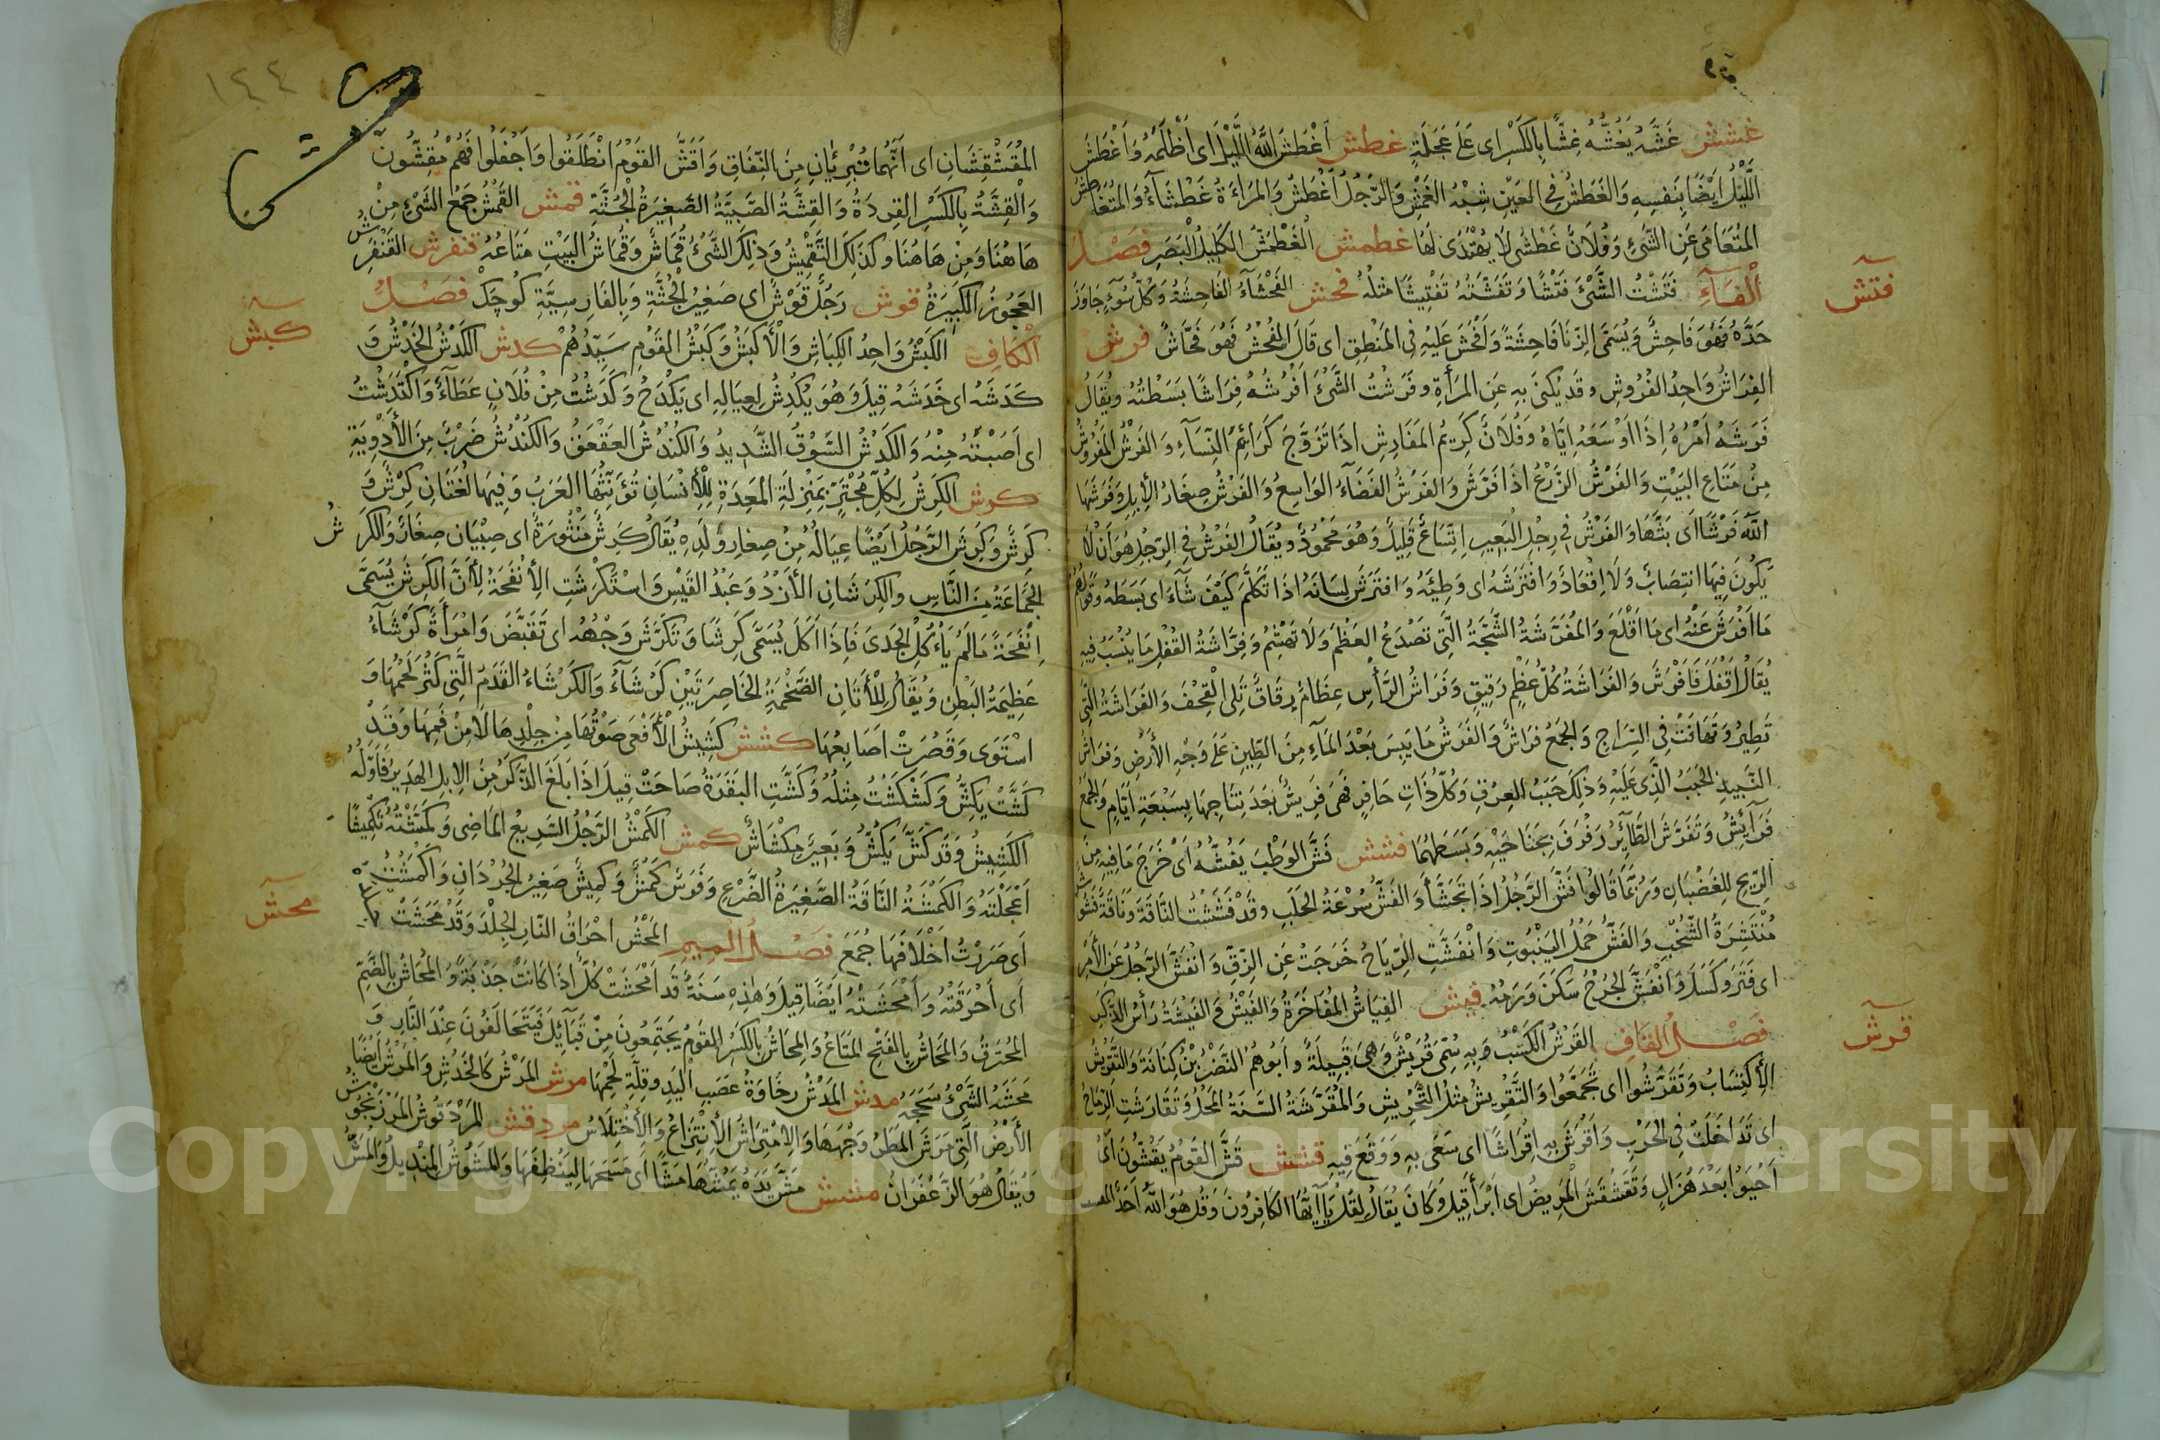 غشش غَشَّهُ يَغُشُّهُ غِشًّا بِالكَسْرِ اى عَلَى عَجَلَةٍ غطش اَغْطَشَ اللَّهُ اللَّيْلَ اى اَظْلَمَهُ وَاَغْطَشَ
اللَّيْلُ اَيْضًا بِنَفْسِهِ وَالغَطَشُ فِى العَيْنِ شِبْهُ العَمَشِ وَالرَّجُلُ اَغْطَشُ وَالمَرْاَةُ غَطْشَاءُ وَالمُتَغَاطِشُ
المُتَعَامِى عَنِ الشَّىْءِ وَفَلَاةٌ غَطْشَى لَا يُهْتَدَى لَهَا غطمش الغَطَمَّشُ الكَلِيلُ البَصَرِ فَصْلُ
الْفَاءِ فَتَشْتُ الشَّىْءَ فَتْشًا وَفَتَّشْتُهُ تَفْتِيشًا مثلُهُ فحش الفَحْشَاءُ الفَاحِشَةُ وَكُلُّ سُوءٍ جَاوَزَ
حَدَّهُ فَهُوَ فَاحِشٌ وَيُسَمَّى الزِّنَا فَاحِشَةً وَاَفْحَشَ عَلَيْهِ فِى المَنْطِقِ اى قَالَ الفُحْشَ فَهُوَ فَحَّاشٌ فرش
الفِرَاشُ وَاحِدُ الفُرُوشِ وقَدْ يُكْنَى بِهِ عَنِ المَرْأَةِ وفَرَشْتُ الشَّىْءَ اَفْرُشُهُ فِرَاشًا بَسَطْتُهُ وَيُقَالُ
فَرَشَهُ اَمْرَهُ اِذَا اَوْسَعَهُ اِيَّاهُ وَفُلَانٌ كَرِيمُ المَفَارِشِ اذَا تَزَوَّجَ كَرَائِمَ النِّسَاءِ وَالفَرْشُ المَفْرُوشُ
مِنْ مَتَاعِ البَيْتِ وَالفَرْشُ الزَّرْعُ اذَا فَرَشَ وَالفَرْشُ الفَضَاءُ الوَاسِعُ وَالفَرْشُ صِغَارُ الاِبِلِ وَفَرَشَهَا
اللَّهُ فَرْشًا اَى بَثَّهَا وَالفَرْشُ فِى رِجْلِ البَعِيرِ اِتِّسَاعٌ قَلِيلٌ وَهُوَ مَحْمُودٌ وَيُقَالُ الفَرْشُ فِى الرِّجْلِ هُوَ اَنْ لَا
يَكُونَ فِيهَا انتِصَابٌ وَلَا اِقْعَادٌ وَافْتَرَشَهُ اى وَطِئَهُ وَافتَرَشَ لِسَانَهُ اذَا تَكَلَّمَ كَيْفَ شَاءَ اى بَسَطَهُ وَقَوْلُهُمْ
مَا اَفْرَشَ عَنْهُ اى مَا اَقْلَعَ وَالمُفْتَرِشَةُ الشَّجَّةُ الَّتِى تَصْدَعُ العَظْمَ وَلَا تَهْشِمُ وَفِرَاشَةُ القُفْلِ مَا يُنْشَبُ فِيهِ
يُقَالُ اَقْفَلَ فَاَفْرَشَ وَالفَرَاشَةُ كُلُّ عَظْمٍ رَقِيقٍ وَفَرَاشُ الرَّأْسِ عِظَامٌ رِقَاقٌ تَلِى القِحْفَ وَالفَرَاشَةُ الَّتِى
تَطِيرُ وَتَهَافَتُ فِى السِّرَاجِ وَالجَمْعُ فَرَاشٌ وَالفَرَشُ مَا يَبِسَ بَعْدَ المَاءِ مِنَ الطِّينِ عَلَى وَجْهِ الأَرْضِ وَفَرَاشُ
النَّبِيذِ الحَبَبُ الَّذِى عَلَيْهِ وَذلِكَ حَبَبُ العِرْقِ وَكُلُّ ذَاتِ حَافِرٍ فَهِىَ فَرِيشٌ بَعْدَ نِتَاجِهَا بِسَبْعَةِ اَيَّامٍ وَالجَمْعُ
فَرَائِشُ وَتَفَرَّشَ الطَّائِرُ رَفْرَفَ بِجَنَاحَيْهِ وَبَسَطَهُمَا فشش فَشَّ الوَطْبَ يَفُشُّهُ اَىْ خَرَجَ مَا فِيهِ مِنَ
الرِّيحِ لِلغَضْبَانِ وَرُبَّمَا قَالُوا فَشَّ الرَّجُلُ اِذَا تَجَشَّأَ وَالفَشُّ سُرْعَةُ الحَلَبِ وقَدْ فَشَشْتُ النَّاقَةَ وَنَاقَةٌ فَشُوشٌ
مُنْتَشِرَةُ الشُّخْبِ وَالفَشُّ حَمْلُ اليَنْبُوتِ وَانْفَشَّتِ الرِّيَاحُ خَرَجَتْ عَنِ الزِّقِّ وَانفَشَّ الرَّجُلُ عَنِ الأَمْرِ
اى فَتَرَ وَكَسَلَ وَانفَشَّ الجُرْحُ سَكَنَ وَرَمُهُ فيش الفِيَاشُ المُفَاخَرَةُ وَالفَيْشُ وَالفَيْشَةُ رَأْسُ الذَّكَرِ
فَصْلُ القَافِ القَرْشُ الكَسْبُ وَبِهِ سُمِّىَ قُرَيْشٌ وَهِىَ قَبِيلَةٌ وَاَبُوهُمُ النَّضْرُ بْنُ كِنَانَةَ وَالتَّقَرُّشُ
الاِكْتِسَابُ وَتَقَرَّشُوا اى تَجَمَّعُوا وَالتَّقْرِيشُ مثلُ التَّحْرِيشِ وَالمُقَرِّشَةُ السَّنَةُ المَحْلُ وَتَقَارَشَتِ الرِّمَاحُ
اى تَدَاخَلَتْ فِى الحَرْبِ وَاَقْرَشَ بِهِ اِقْرَاشًا اى سَعَى بِهِ وَوَقَعَ فِيهِ قشش قَشَّ القَوْمُ يَقُشُّونَ اَىْ
اَحْيَوْا بَعْدَ هُزَالٍ وَتَقَشْقَشَ المَرِيضُ اى اَبْرَأَ قِيلَ وَكَانَ يُقَالُ لِقُلْ يَا اَيُّهَا الكَافِرُونَ وَقُلْ هُوَ اللَّهُ اَحَدٌ
فتش
قرش
١٤٤
المُقَشْقِشَتَانِ اى اَنَّهُمَا تُبْرِئَانِ مِنَ النِّفَاقِ وَاَقَشَّ القَوْمُ انْطَلَقُوا وَاَجْفَلُوا فَهُمْ مُقِشُّونَ
وَالْقِشَّةُ بِالكَسْرِ القِرْدَةُ وَالقِشَّةُ الصَّبِيَّةُ الصَّغِيرَةُ الجُثَّةِ قمش القَمْشُ جَمْعُ الشَّىْءِ مِنْ
هَاهُنَا وَمِنْ هَاهُنَا وَكَذلِكَ التَّقْمِيشُ وَذلِكَ الشَّىْءُ قُمَاشٌ وَقُمَاشُ البَيْتِ مَتَاعُهُ قنفرش القَنْفَرِشُ
العَجُوزُ الكَبِيرَةُ قوش رَجُلٌ قُوشٌ اى صَغِيرُ الجُثَّةِ وَبِالفَارِسِيَّةِ كُوچَكْ فَصْلُ
الْكَافِ الكَبْشُ وَاحِدُ الكِبَاشِ وَالْأَكْبُشِ وَكَبْشُ القَوْمِ سَيِّدُهُمْ كدش الكَدْشُ الخَدْشُ وَ
كَدَشَهُ اى خَدَشَهُ قِيلَ وَهُوَ يَكْدِشُ لِعِيَالِهِ اى يَكْدَحُ وَكَدَشْتُ مِنْ فُلَانٍ عَطَاءً وَاكْتَدَشْتُ
اى اَصَبْتُهُ مِنْهُ وَالكَدْشُ السَّوْقُ الشَّدِيدُ وَالكُنْدُشُ العَقْعَقُ وَالكُنْدُشُ ضَرْبٌ مِنَ الأَدْوِيَةِ
كرش الكَرِشُ لِكُلِّ مُجْتَرٍّ بِمَنْزِلَةِ المَعِدَةِ لِلْاِنْسَانِ تُؤَنِّثُهَا العَرَبُ وَفِيهَا لُغَتَانِ كِرْشٌ وَ
كَرِشٌ وَكَرِشُ الرَّجُلِ اَيْضًا عِيَالُهُ مِنْ صِغَارِ وَلَدِهِ يُقَالُ كَرِشٌ مَنْثُورَةٌ اى صِبْيَان صِغَارٌ وَالكَرِشُ
الجَمَاعَةُ مِنَ النَّاسِ والكَرِشَانِ الأَزْدُ وَعَبْدُ القَيْسِ وَاسْتَكْرَشَتِ الاِنْفَحَةُ لِاَنَّ الكَرِشَ يُسَمَّى
اِنْفَحَةً مَا لَمْ يَأْكُلِ الجَدْىُ فَاِذَا اَكَلَ يُسَمَّى كَرِشًا وَتَكَرَّشَ وَجْهُهُ اى تَقَبَّضَ وَامْرَأَةٌ كَرْشَاءُ
عَظِيمَةُ البَطْنِ وَيُقَالُ لِلْاَتَانِ الضَّخْمَةِ الخَاصِرَتَيْنِ كَرْشَاءُ وَالكَرْشَاءُ القَدَمُ الَّتِى كَثُرَ لَحْمُهَا وَ
اسْتَوَى وَقَصُرَتْ اَصَابِعُهَا كشش كَشِيشُ الْأَفْعَى صَوْتُهَا مِنْ جِلْدِهَا لَا مِنْ فَمِهَا وَقَدْ
كَشَّتْ يَكِشُّ وَكَشْكَشَتْ مِثلُهُ وَكَشَّتِ البَقَرَةُ صَاحَتْ قِيلَ اذَا بَلَغَ الذَّكَرُ مِنَ الاِبِلِ الهَدِيرَ فَاَوَّلُهُ
الكَشِيشُ وَقَدْ كَشَّ يَكِشُّ وَبَعِيرٌ مِكْشَاشٌ كمش الكَمْشُ الرَّجُلُ السَّرِيعُ المَاضِى وَكَمَّشْتُهُ تَكْمِيشًا
اَعْجَلْتُهُ وَالكَمْشَةُ النَّاقَةُ الصَّغِيرَةُ الضَّرْعِ وَفَرَسٌ كَمْشٌ وَكَمِيشٌ صَغِيرُ الجُرْدَانِ وَاَكْمَشْتُ
اَى صَرَرْتُ اَخْلَافَهَا جُمَعَ فَصْلُ المِيمِ المَحْشُ احْرَاقُ النَّارِ الجِلْدَ وَقَدْ مَحَشَتْ
اَى اَحْرَقَتْهُ وَاَمْحَشَتْهُ اَيْضًا قِيلَ وَهٰذِهِ سَنَةٌ قَدْ اَمْحَشَتْ كُلَّ اذَا كَانَتْ جَدْبَةً وَالمُحَاشُ بِالضَّمِّ
المُحْتَرِقُ وَالمَحَاشُ بِالفَتْحِ المَتَاعُ وَالمِحَاشُ بِالكَسْرِ القَوْمُ يَجْتَمِعُونَ مِنْ قَبَائِلَ فَيَتَحَالَفُونَ عِنْدَ النَّارِ وَ
مَحَشَهُ الشَّىْءُ سَحَجَهُ مدش المَدَشُ رَخَاوَةُ عَصَبِ اليَدِ وقِلَّةِ لَحْمِهَا مرش المَرْشُ كَالخَدْشِ وَالمَرْشُ اَيْضًا
الأَرْضُ الَّتِى مَرَشَ المَطَرُ وَجْهَهَا وَالاِمْتِرَاشُ الاِنْتِزَاعُ وَالاِخْتِلَاسُ مردقش المَرْدَقُوشُ المَرْزَنْجُوشُ
وَيُقَالُ هُوَ الزَّعْفَرَانُ مشش مَشَّ يَدَهُ يَمُشُّهَا مَشًّا اَى مَسَحَهَا لِيُنَظِّفَهَا وَالمَشُوشُ المِنْدِيلُ وَالمَشُّ
كبش
محش
Copyright © King Saud University